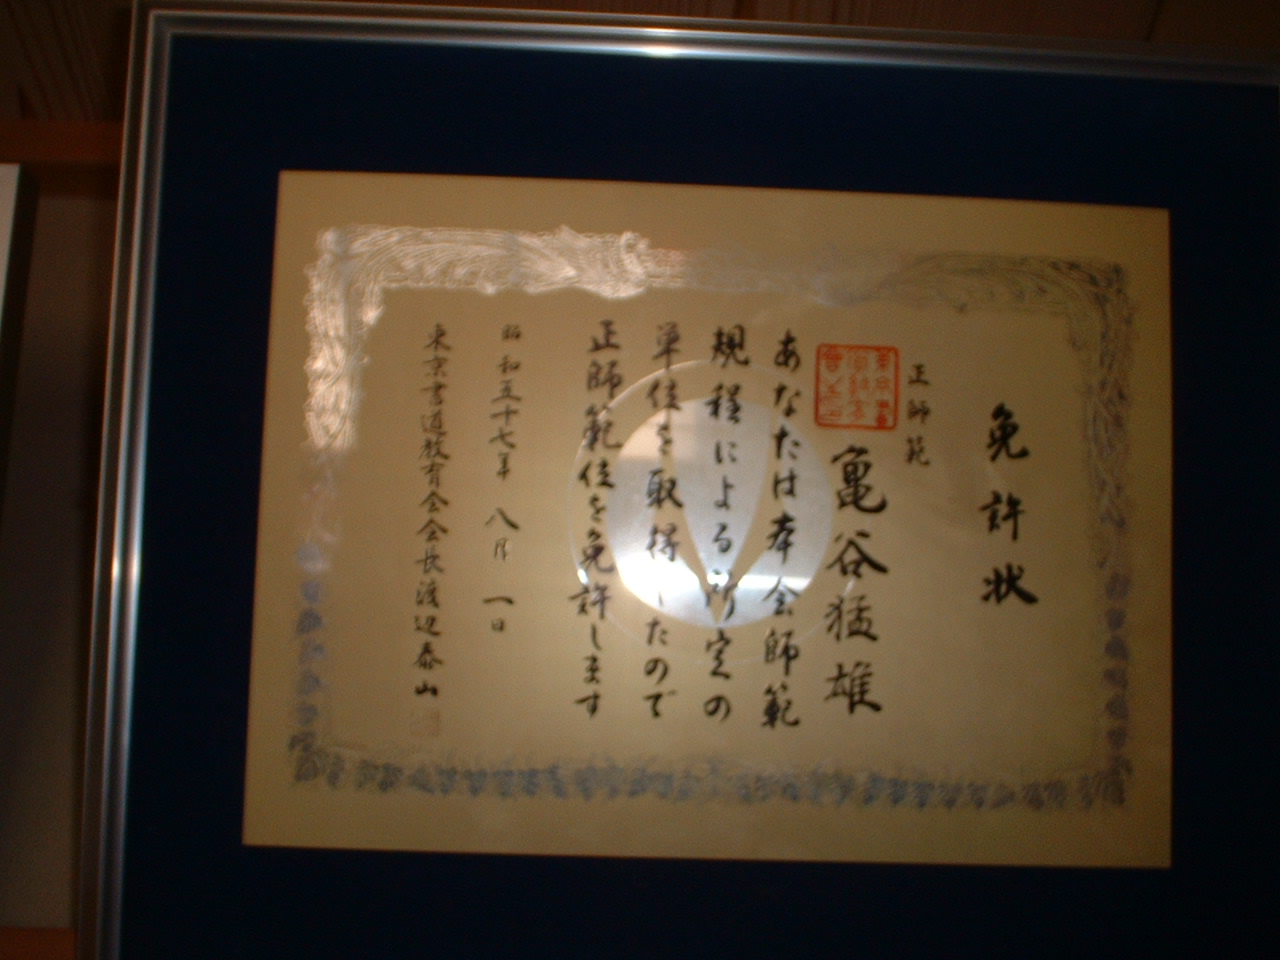 免許状
正師範
亀谷猛雄
あなたは本会師範
規程による所定の
単位を取得したので
正師範位を免許します
昭和五十七年 八月 一日
東京書道教育会会長渡辺泰山